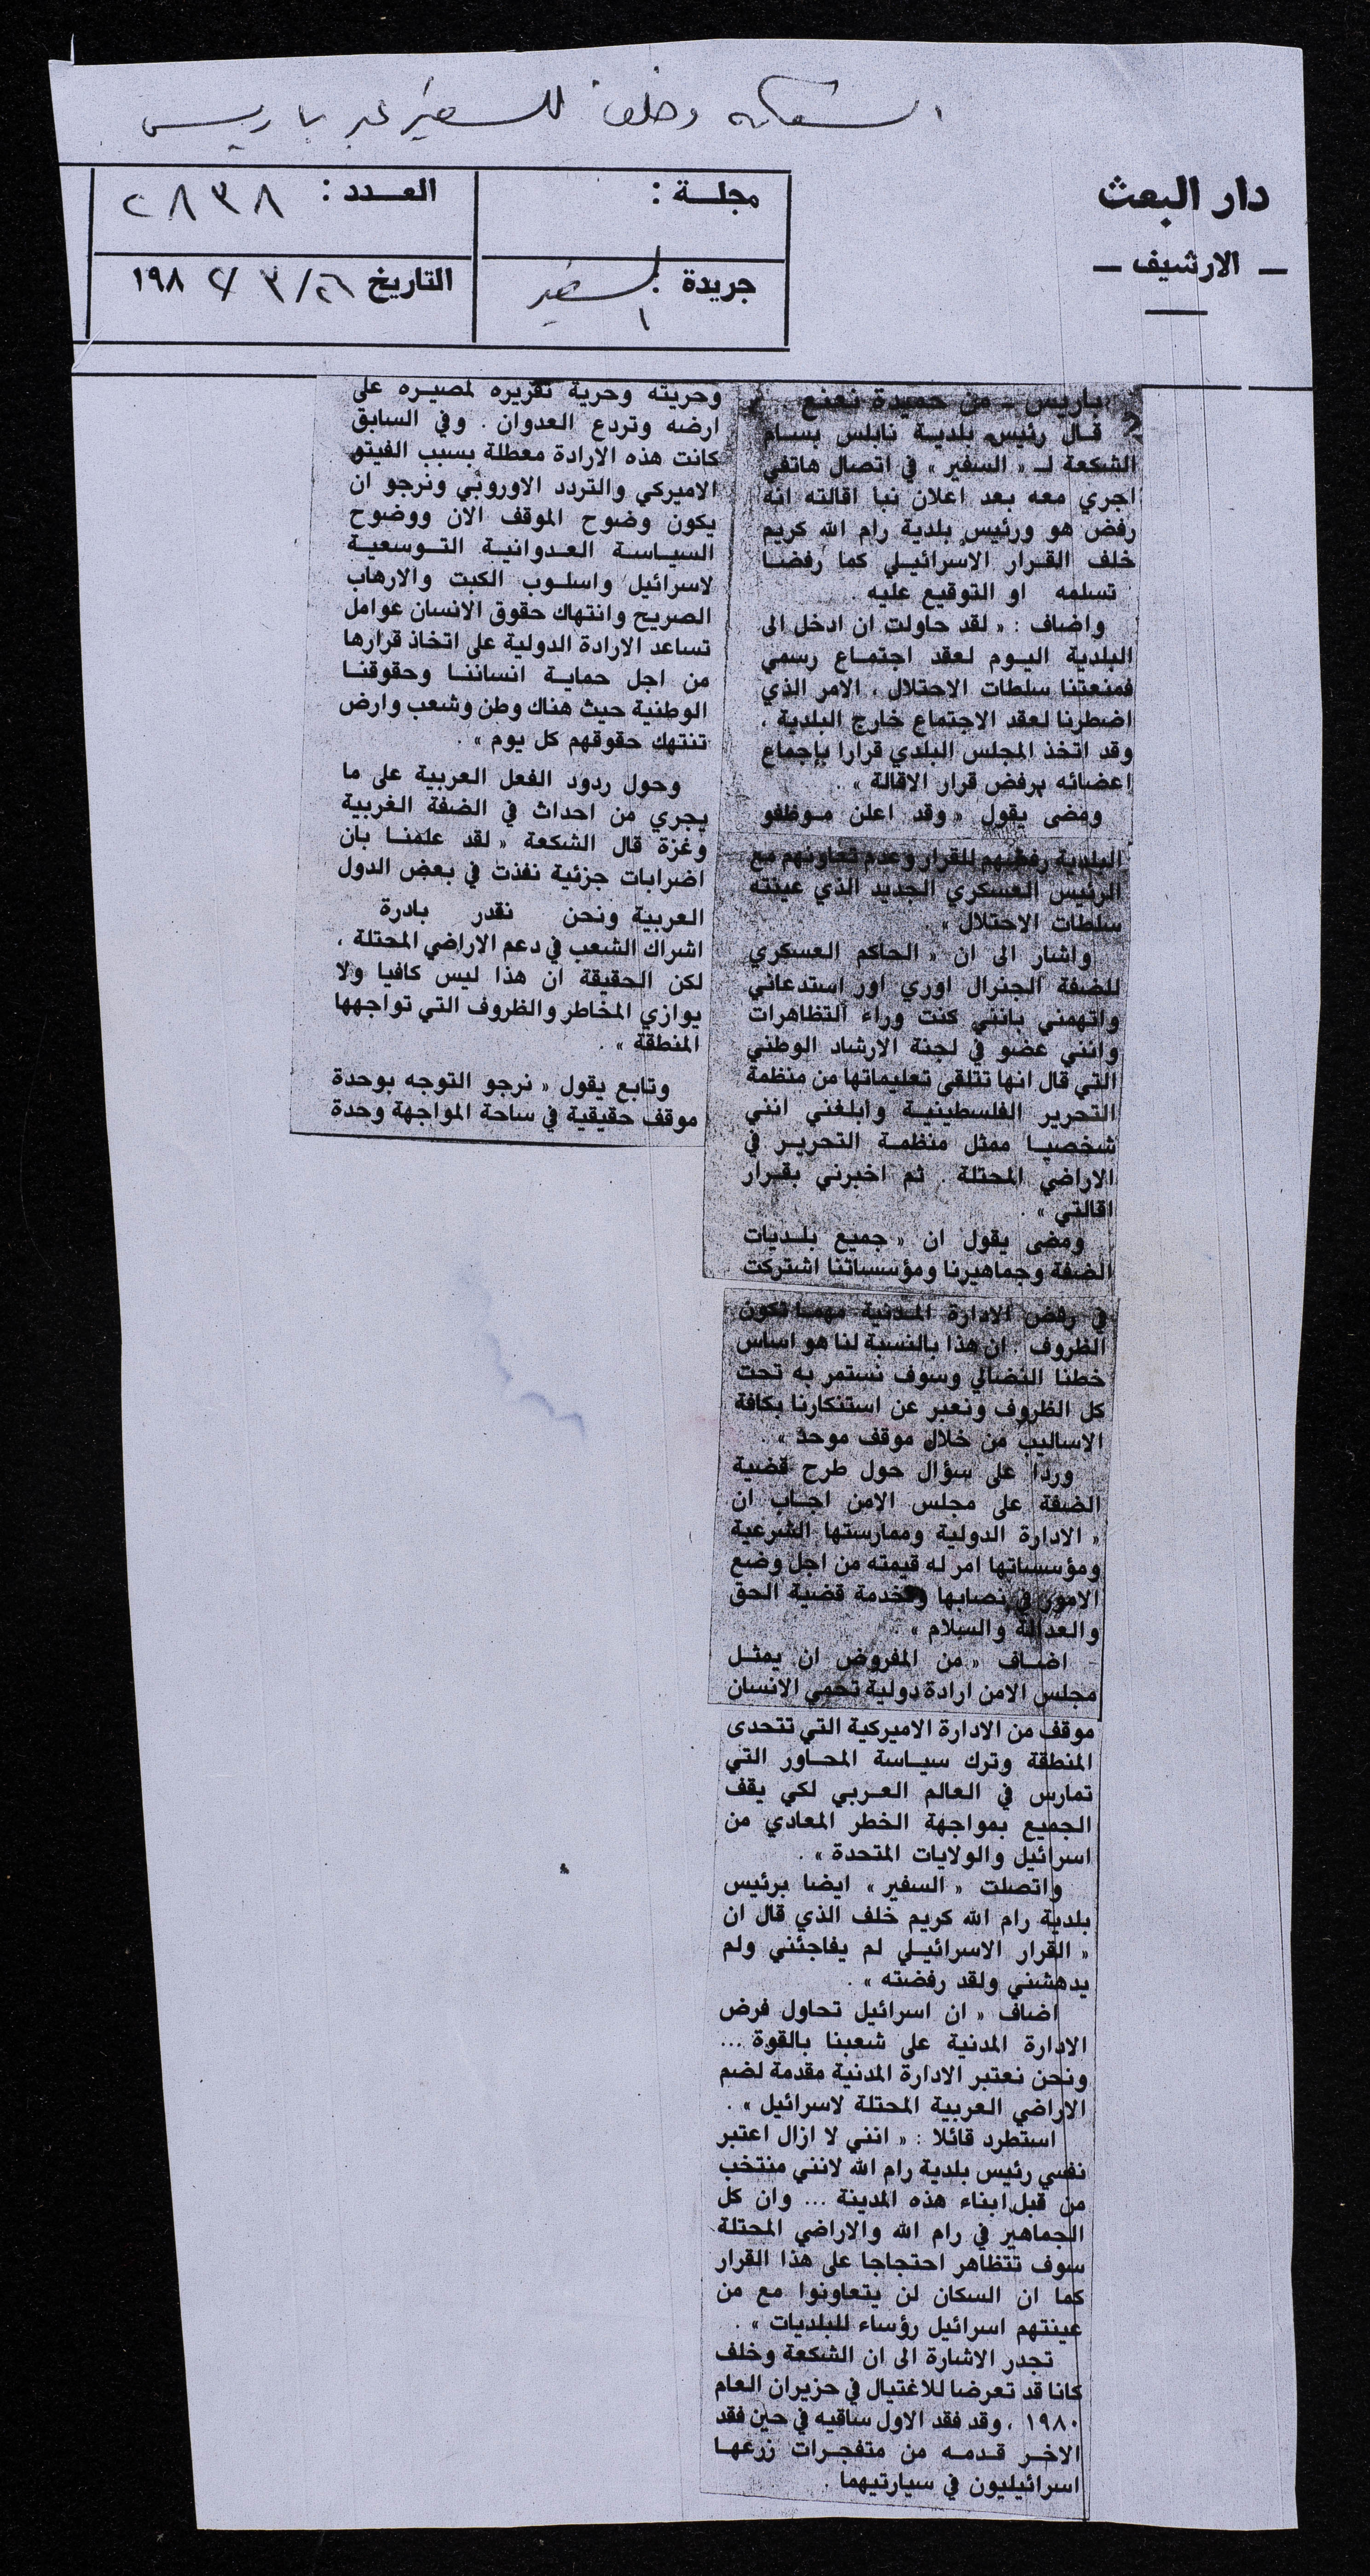 الشكعة وخلف للسفير عبر باريس
دار البعث
— الارشيف —
مجلـــة :
العــدد : ٢٨٣٨
جريدة : السفير
١
التاريخ ٢٦/ ٣/ ١٩٨٢
باريس ـ من حميدة نعنع
قـال رئيس بلديـة نابلس بسـام
الشكعة لـ « السفير » في اتصال هاتفي
اجري معه بعد اعلان نبا اقالته انه
رفض هو ورئيس بلدية رام الله كريم
خلف القـرار الاسرائيـلي كما رفضنـا
تسلمه او التوقيع عليه .
واضاف : « لقد حاولت ان ادخل الى
البلدية اليـوم لعقد اجتمـاع رسمي
فمنعتنا سلطات الاحتلال ، الامر الذي
اضطرنا لعقد الاجتماع خارج البلدية ،
وقد اتخذ المجلس البلدي قرارا بإجماع
اعضائه برفض قرار الاقالة » .
ومضى يقول « وقد اعلن موظفو
البلدية رفضهم للقرار وعدم تعاونهم مع
الرئيس العسكري الجديد الذي عينته
سلطات الاحتلال » .
واشار الى ان « الحاكم العسكري
للضفة الجنرال اوري اور استدعاني
واتهمني بانني كنت وراء التظاهرات
وانني عضو في لجنة الارشاد الوطني
التي قال انها تتلقى تعليماتها من منظمة
التحرير الفلسطينيـة وابلغني انني
شخصيـا ممثل منظمـة التحريـر في
الاراضي المحتلة . ثم اخبرني بقـرار
اقالتي » .
ومضى يقول ان « جميع بلـديات
الضفة وجماهيرنا ومؤسساتنا اشتركت
في رفض الادارة المـدنية مهمـا تكون
الظروف . ان هذا بالنسبة لنا هو اساس
خطنا النضالي وسوف نستمر به تحت
كل الظروف ونعبر عن استنكارنا بكافة
الاساليب من خلال موقف موحد » .
وردا على سؤال حول طرح قضية
الضفة على مجلس الامن اجـاب ان
« الادارة الدولية وممارستها الشرعية
ومؤسساتها امر له قيمته من اجل وضع
الامور في نصابها ولخدمة قضية الحق
والعدالة والسلام » .
اضـاف « من المفروض ان يمثـل
مجلس الامن ارادة دولية تحمي الانسان
وحريته وحرية تقريره لمصيـره على
ارضه وتردع العدوان . وفي السابق
كانت هذه الارادة معطلة بسبب الفيتو
الاميركي والتردد الاوروبي ونرجو ان
يكون وضوح الموقف الان ووضوح
السيـاسـة العـدوانيـة التـوسعيـة
لاسرائيل واسلـوب الكبت والارهاب
الصريح وانتهاك حقوق الانسان عوامل
تساعد الارادة الدولية على اتخاذ قرارها
من اجل حمايـة انساننـا وحقوقنـا
الوطنية حيث هناك وطن وشعب وارض
تنتهك حقوقهم كل يوم » .
وحول ردود الفعل العربية على ما
يجري من احداث في الضفة الغربية
وغزة قال الشكعة « لقد علمنـا بان
اضرابات جزئية نفذت في بعض الدول
العربية ونحن نقدر بادرة
اشراك الشعب في دعم الاراضي المحتلة ،
لكن الحقيقة ان هذا ليس كافيا ولا
يوازي المخاطر والظروف التي تواجهها
المنطقة » .
وتابع يقول « نرجو التوجه بوحدة
موقف حقيقية في ساحة المواجهة وحدة
موقف من الادارة الاميركية التي تتحدى
المنطقة وترك سيـاسة المحـاور التي
تمارس في العالم العـربي لكي يقف
الجميع بمواجهة الخطر المعادي من
اسرائيل والولايات المتحدة » .
واتصلت « السفير » ايضا برئيس
بلدية رام الله كريم خلف الذي قال ان
« القرار الاسرائيـلي لم يفاجئني ولم
يدهشني ولقد رفضته » .
اضاف « ان اسرائيل تحاول فرض
الادارة المدنية على شعبنا بالقوة ...
ونحن نعتبر الادارة المدنية مقدمة لضم
الاراضي العربية المحتلة لاسرائيل » .
استطرد قائلا : « انني لا ازال اعتبر
نفسي رئيس بلدية رام الله لانني منتخب
من قبل ابناء هذه المدينة ... وان كل
الجماهير في رام الله والاراضي المحتلة
سوف تتظاهر احتجاجا على هذا القرار
كما ان السكان لن يتعاونوا مع من
عينتهم اسرائيل رؤساء للبلديات » .
تجدر الاشارة الى ان الشكعة وخلف
كانا قد تعرضا للاغتيال في حزيران العام
١٩٨٠ ، وقد فقد الاول ساقيه في حين فقد
الاخـر قـدمـه من متفجـرات زرعهـا
اسرائيليون في سيارتيهما .